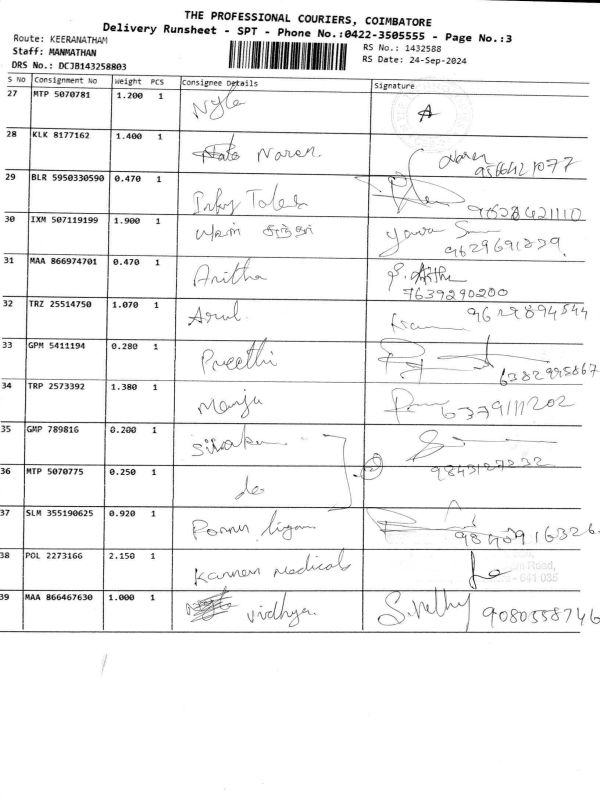 THE PROFESSIONAL COURIERS, COIMBATORE
Delivery Runsheet - SPT - Phone No.:0422-3505555 - Page No.:3
Route: KEERANATHAM
RS No.: 1432588
Staff: MANMATHAN
RS Date: 24-Sep-2024
DRS No.: DCJB143258803
S No Consignment No Weight PCS Consignee Details Signature
27 MTP 5070781 1.200 1
28 KLK 8177162 1.400 1 Naren. Naren
9566421077
29 BLR 5950330590 0.470 1
9628421110
30 IXM 507119199 1.900 1 யுவன் சுந்தர்
31 MAA 866974701 0.470 1 Anitha
7639290200
32 TRZ 25514750 1.070 1 Arul. 9629894544
33 GPM 5411194 0.280 1 Preethi
6382995867
34 TRP 2573392 1.380 1 Manju 6379111202
35 GMP 789816 0.200 1
9843127232
36 MTP 5070775 0.250 1 do
37 SLM 355190625 0.920 1
9840916326.
38 POL 2273166 2.150 1 Kannan Medicals
Road,
- 641 035
39 MAA 866467630 1.000 1 Vidhya. 9080558746